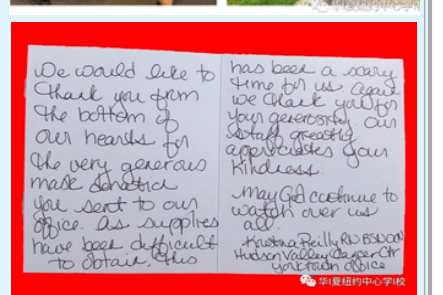 华夏纽约中心学校
We would like to
thank you from
the bottom of
our hearts for
the very generous
mask donation
you sent to our
office. As supplies
have been difficult
to obtain, this
has been a scary
time for us. Again
we thank you for
your generosity. Our
staff greatly
appreciates your
kindness.
May God continue to
watch over us
all.
Kristina Reilly RN BSN OCN
Hudson Valley Cancer Ctr
Yorktown office
华夏纽约中心学校